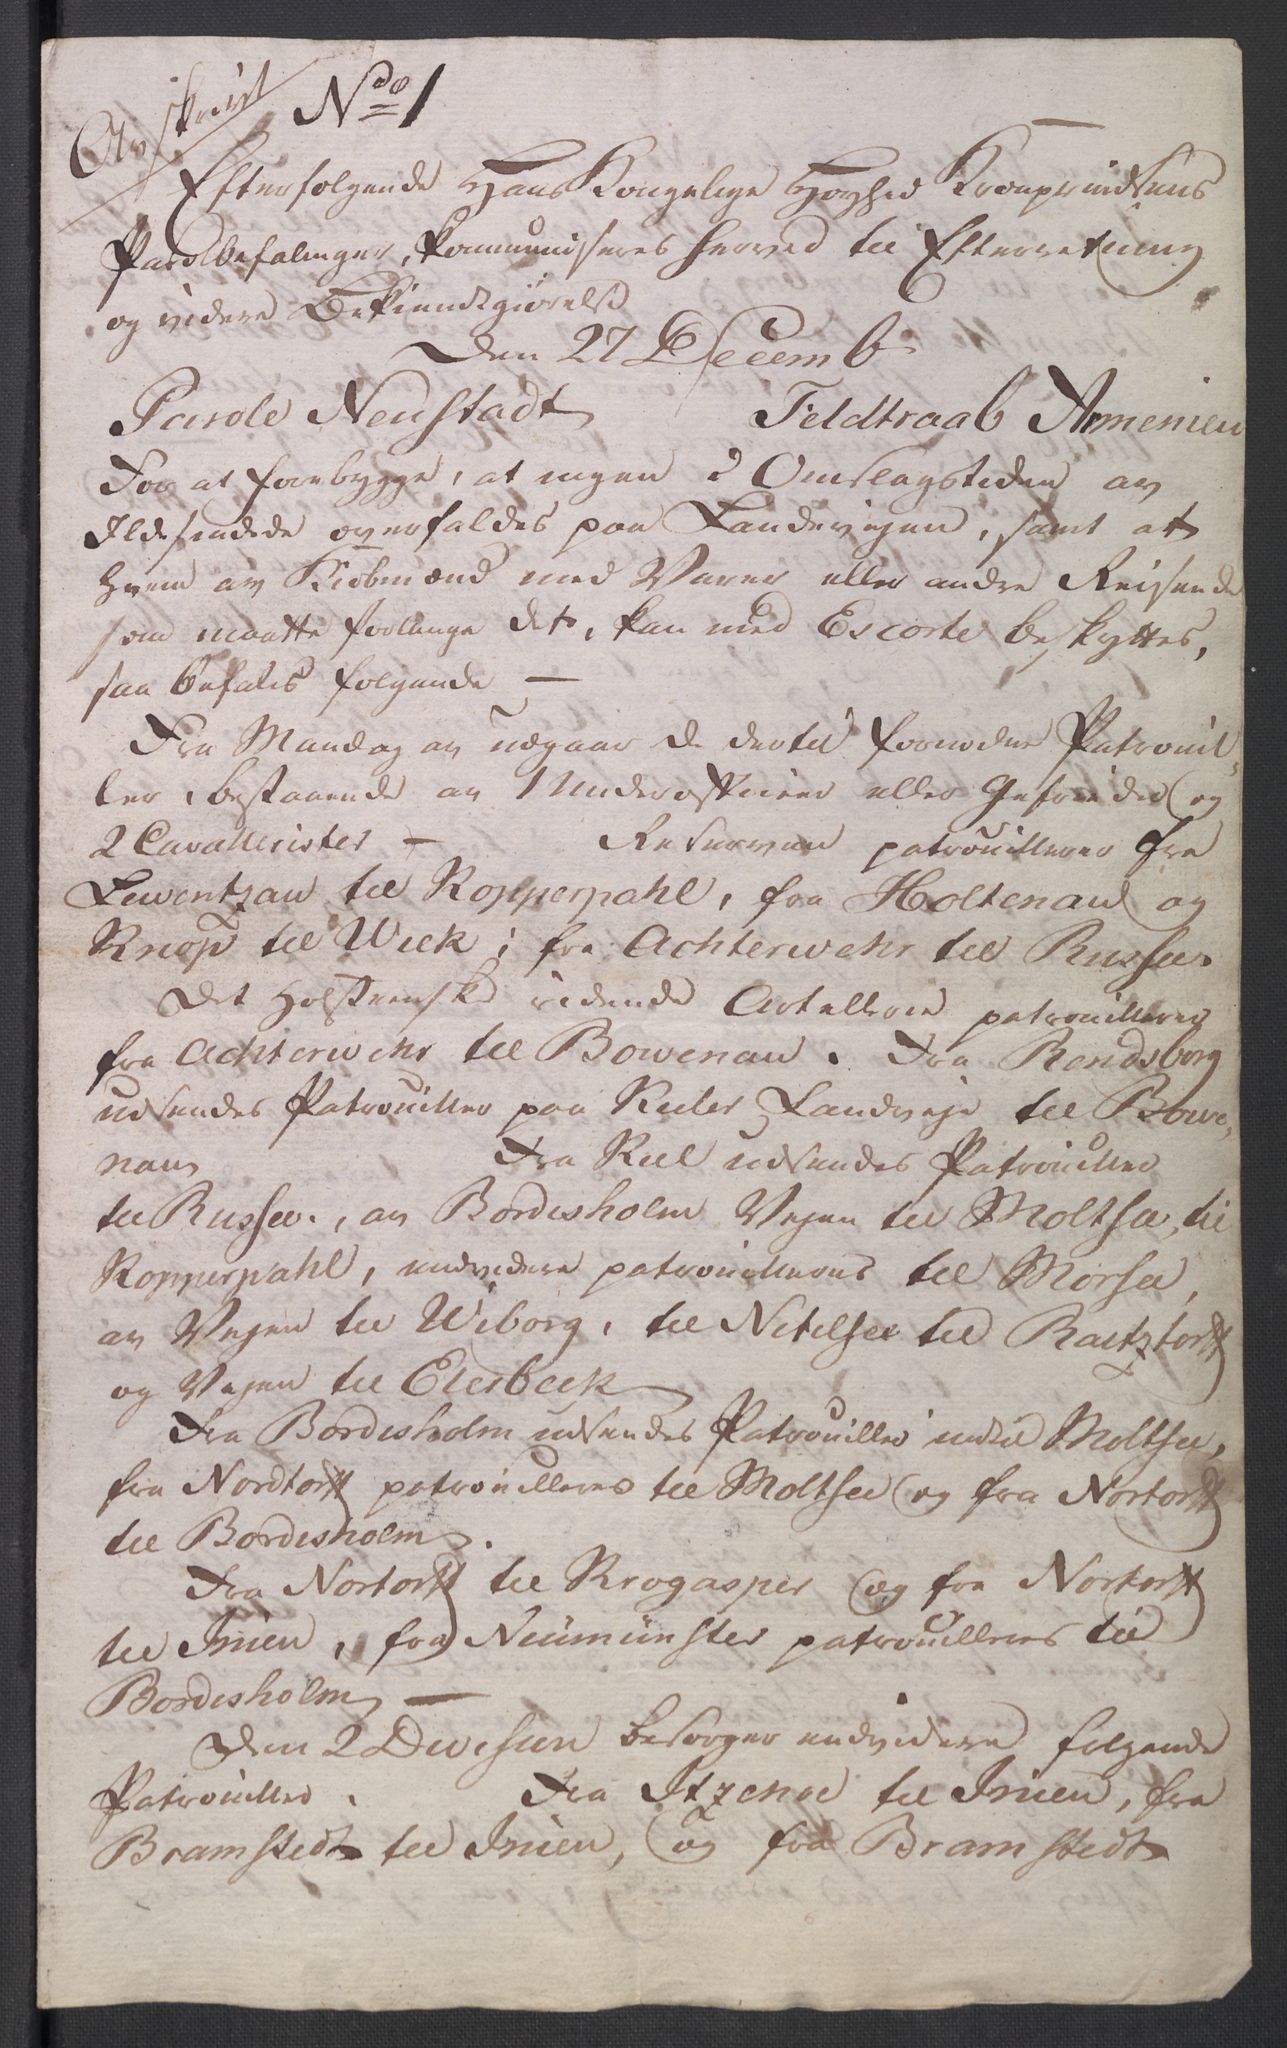 Avskrivt
Ndo 1
Efterfølgende Hans Kongelige Høyhed Kronprindsens
Parolbefalinger, kommuniseres herved til Efterretning
og videre Bekiendtgiørelse
Den 27 Decemb
Parole Neustadt Feldtraab Armenien
For at forebygge, at ingen i Omslagstiden av
Ildesindede overfaldes paa Landevejen, samt at
hvem av Kiøbmænd med Varer eller andre Reisende
som maatte forlange det, kan med Escorte beskyttes,
saa befales følgende —
Fra Mandag av udgaar de dertil fornødne Patrouil-
ler, bestaaende av 1 Underofficeer eller Gefreider og
2 Cavallerister — Reserven patrouillerer fra
Lewentzau til Kopperpahl, fra Holtenau og
Knop til Wiek, fra Achterwehr til Russee.
Det Holsteenske ridende Artellerie patrouillerer
fra Achterwehr til Bowenau. Fra Rendsborg
udsendes Patrouiller paa Kieler Landveje til Bowe-
nau Fra Kiel udsendes Patrouiller
til Russee, av Bordesholm Vejen til Moltsee, til
Kopperpahl, endvidere patrouilleres til Morsee,
av Vejen til Wiborg, til Netelsee til Raitztorff
og Vejen til Elerbeek
Fra Bordesholm udsendes Patrouiller indtil Moltsee,
fra Nordtorff patrouilleres til Moltsee og fra Nortorff
til Bordesholm.
Fra Nortorff til Krogasper og fra Nortorff
til Inien, fra Neumünster patrouilleres til
Bordesholm —
Den 2 Division besørger endvidere følgende
Patrouiller. Fra Itzehoe til Inien, fra
Bramstedt til Inien, og fra Bramstedt